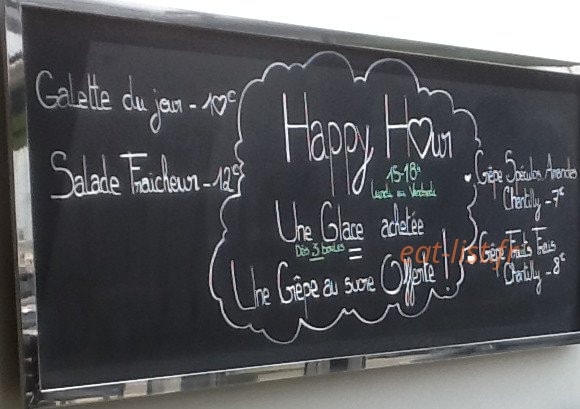 Galette du jour - 10€
Salade Fraicheur - 12€
Happy Hour
15-18h
Lundi au Vendredi
Une Glace achetée
Dès 3 boules =
Une Crêpe au sucre Offerte !
Crêpe Spéculos Amandes
Chantilly - 7€
Crêpe Fruits Frais
Chantilly - 8€
eat-list.fr